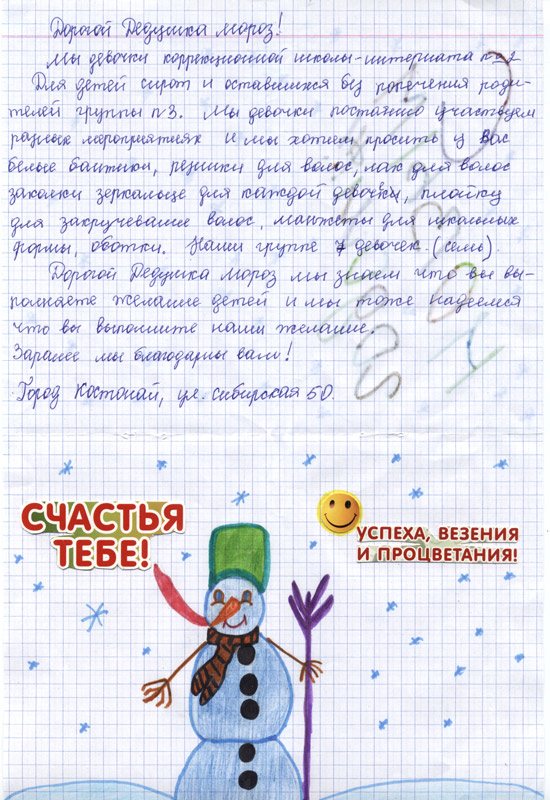 Дорогой Дедушка Мороз!
Мы девочки коррекционной школы-интерната №2
Для детей сирот и оставшихся без попечения роди-
телей группы №3. Мы девочки постоянно участвуем
разных мероприятиях и мы хотим просить у Вас
белые бантики, резинки для волос, лак для волос
заколки зеркальце для каждой девочки, плойку
для закручевание волос, манжеты для школьных
формы, ободки. Наши группе 7 девочек. (семь).
Дорогой Дедушка Мороз мы знаем что вы вы-
полняете желание детей и мы тоже надеемся
что вы выполните наши желание.
Заранее мы благодарны вам!
Город Костонай, ул. Сибирская 50.
СЧАСТЬЯ
ТЕБЕ!
УСПЕХА, ВЕЗЕНИЯ
И ПРОЦВЕТАНИЯ!